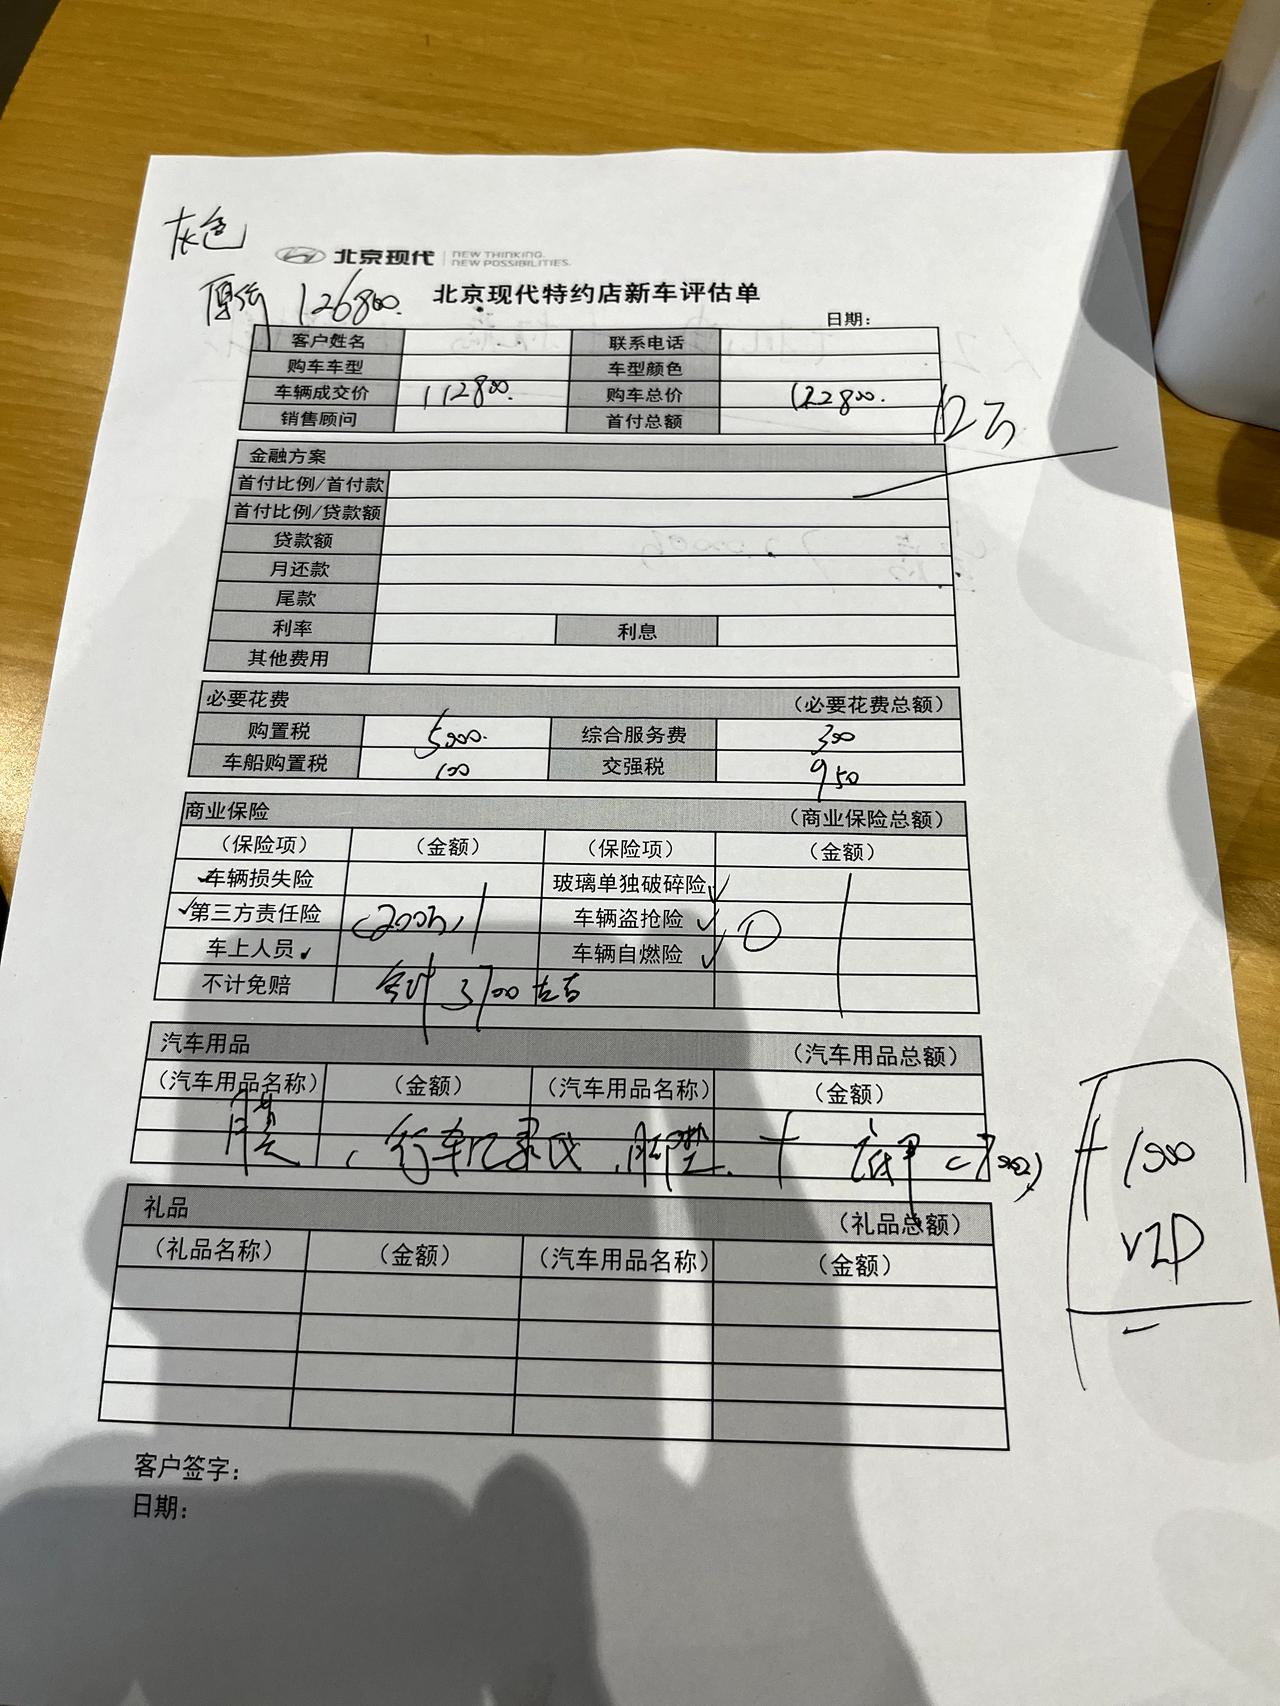 灰色
北京现代 NEW THINKING. NEW POSSIBILITIES.
原价 126800. 北京现代特约店新车评估单
日期:
客户姓名 联系电话
购车车型 车型颜色
车辆成交价 112800. 购车总价 122800. 12万
销售顾问 首付总额
金融方案
首付比例/首付款
首付比例/贷款额
贷款额
月还款
尾款
利率 利息
其他费用
必要花费 (必要花费总额)
购置税 5000. 综合服务费 300
车船购置税 100 交强税 950
商业保险 (商业保险总额)
(保险项) (金额) (保险项) (金额)
车辆损失险 玻璃单独破碎险
第三方责任险 (200万) 车辆盗抢险 ①
车上人员 车辆自燃险
不计免赔 合计 3700 左右
汽车用品 (汽车用品总额)
(汽车用品名称) (金额) (汽车用品名称) (金额)
膜、行车记录仪、脚垫、+ 底甲 + 1500
VIP
礼品 (礼品总额)
(礼品名称) (金额) (汽车用品名称) (金额)
客户签字:
日期: